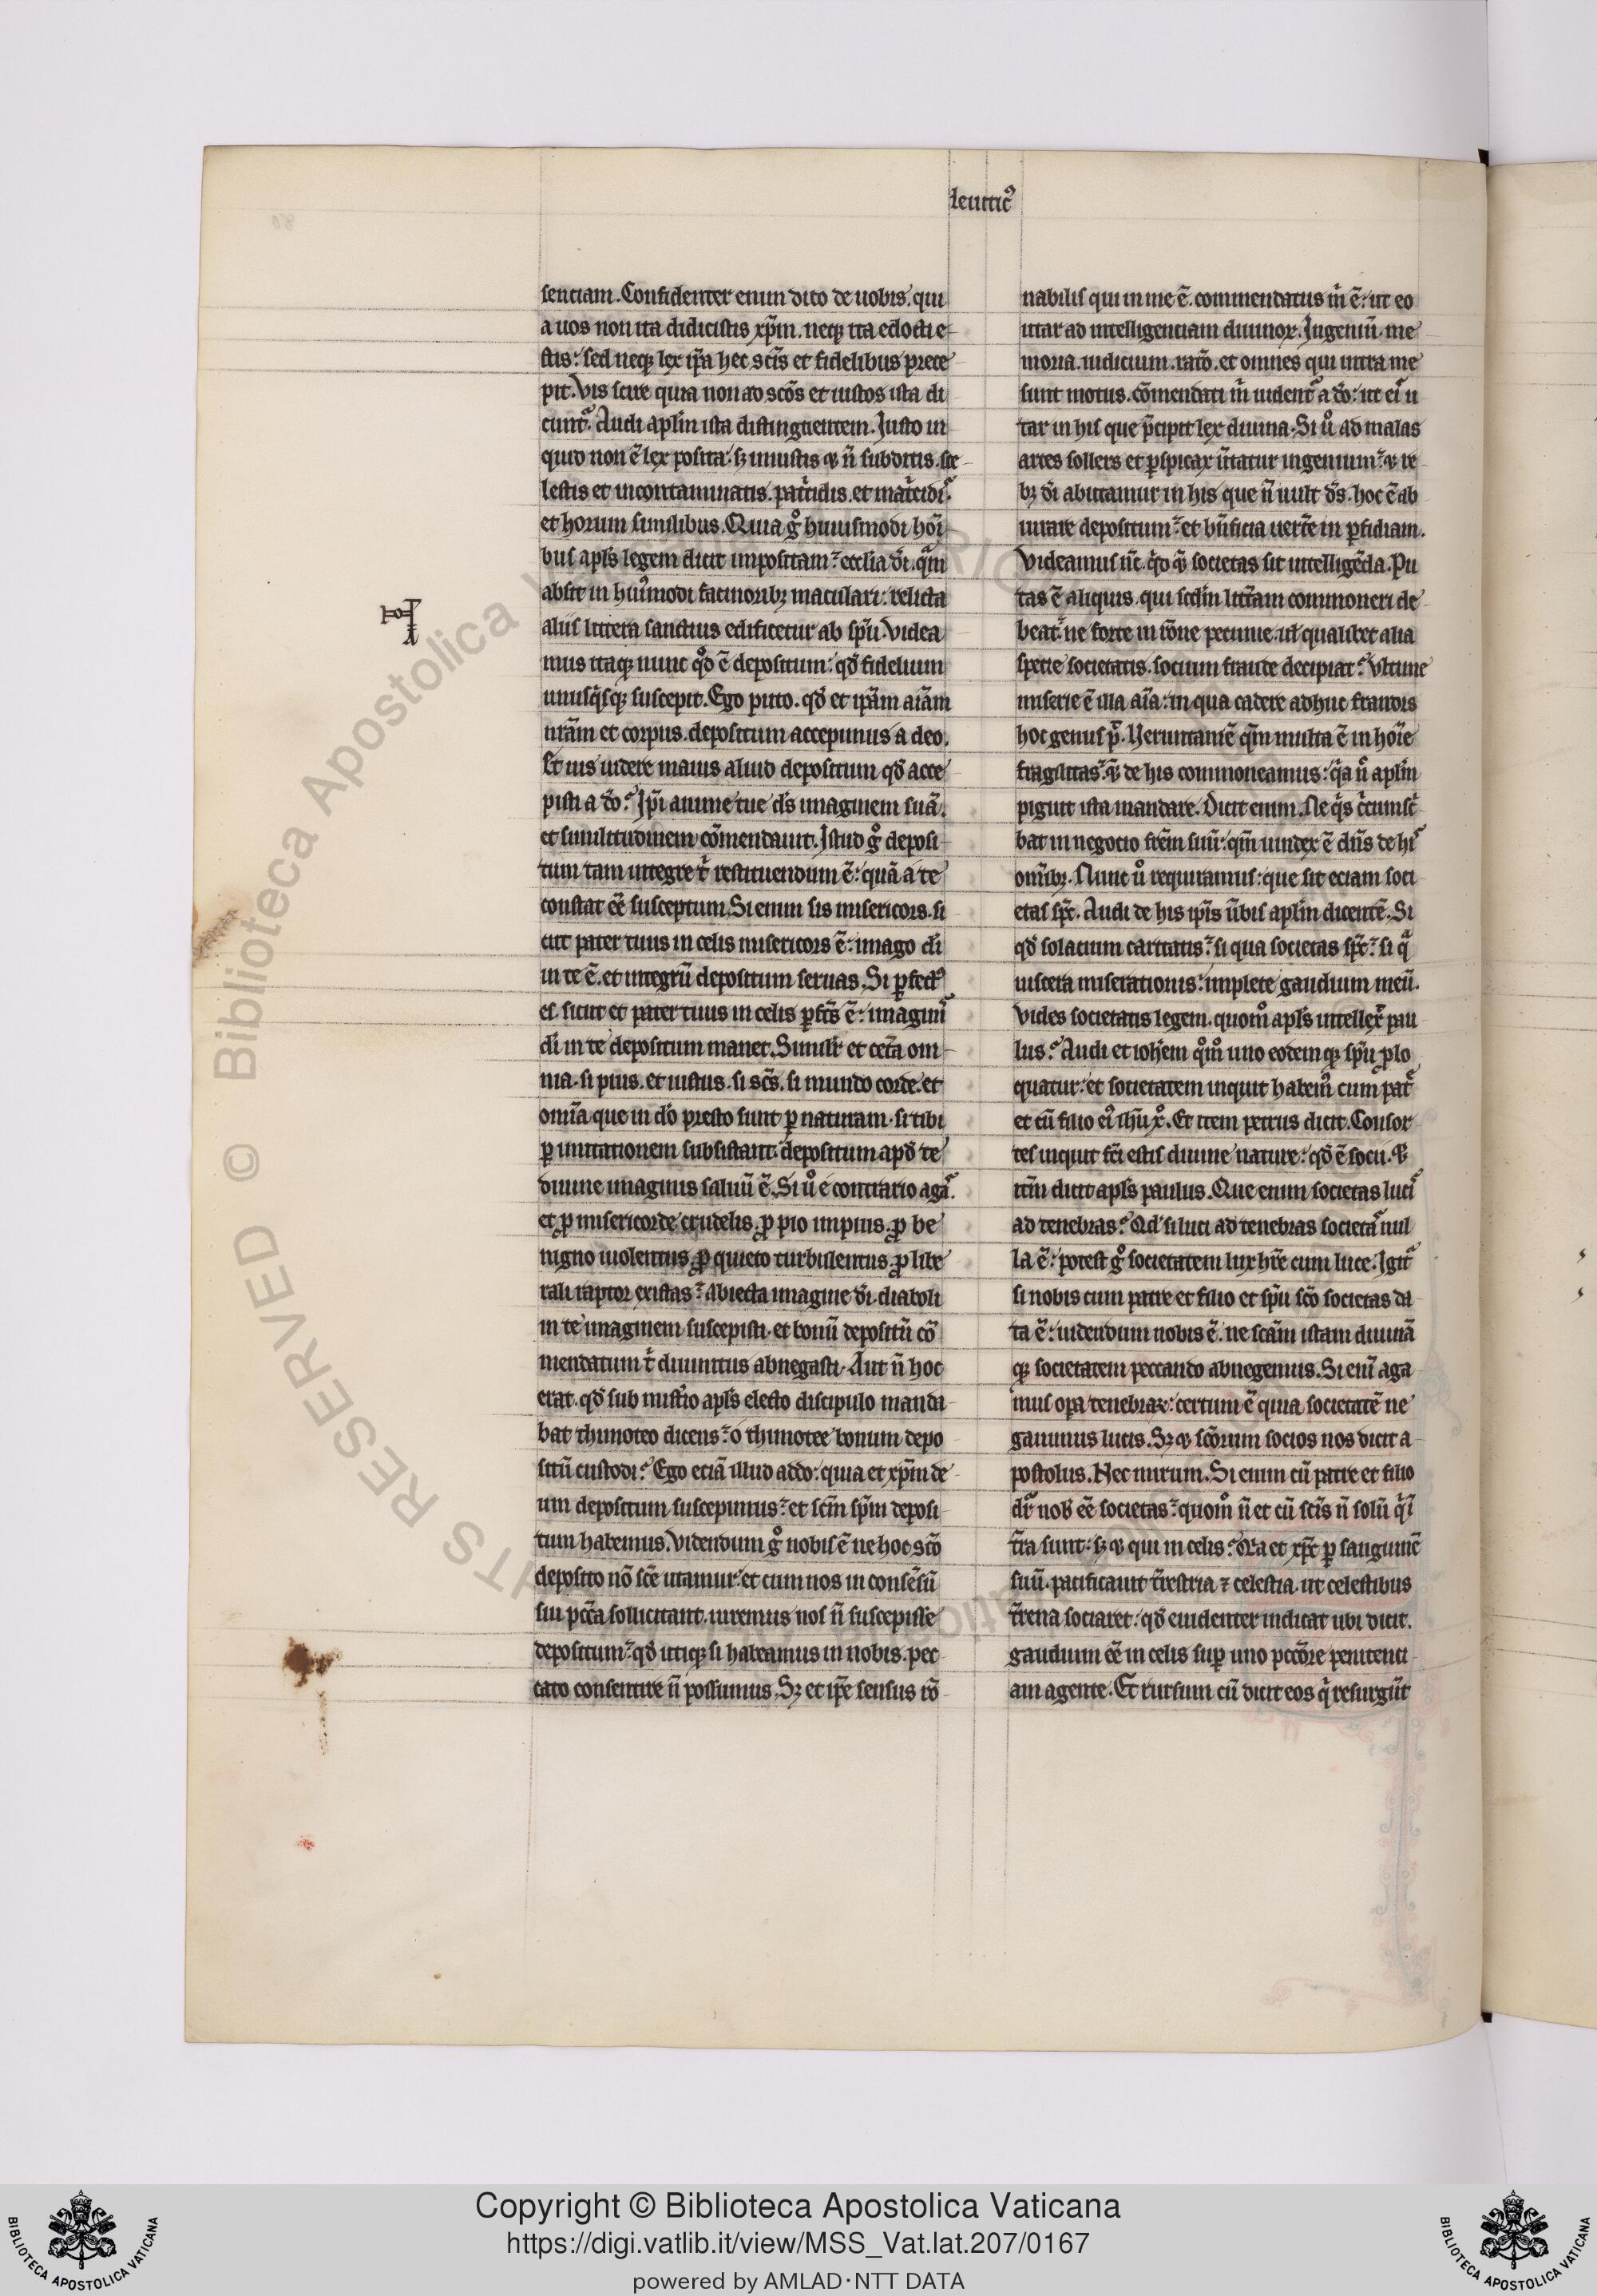 leuiticꝰ
senciam. Confidenter enim dico de uobis. qui
a uos non ita didicistis xp̄m. neqꝫ ita edocti e
stis: sed neqꝫ lex ip̄a hec sc̄is et fidelibus prece
pit. Vis scire quia non ad sc̄os et iustos ista di
cunt᷑. Audi apl̄m ista distinguentem. Justo in
quid non ē lex posita: sꝫ iniustis ⁊ n̄ subditis. sce
lestis et incontaminatis. pat̄cidis. et mat̄cidi᷑.
et horum similibus. Quia gͦ huiusmodi hoı̄
bus apl̄s legem dicit impositam: eccl̄ia dı̄. qm̄
absit in huı᷒modi facinoribꝫ maculari: relicta
aliis littera sanctius edificetur ab sp̄u. Videa
mus itaqꝫ nunc qͦd ē depositum: qd̄ fidelium
unusqͥsqꝫ suscepit. Ego puto. qd̄ et ip̄am aı̄am
nr̄am et corpus. depositum accepimus a deo.
Et uis uidere maius aliud depositum qd̄ acce
pisti a dō. Ip̄i anime tue d̄s imaginem suā.
et similitudinem cōmendauit. Istud gͦ deposi
tum tam integre t̄ restituendum ē: quā a te
constat eē susceptum. Si enim sis misericors. si
cut pater tuus in celis misericors ē: imago dı̄
in te ē. et integrū depositum seruas. Si ꝑfectꝰ
es sicut et pater tuus in celis ꝑfc̄s ē: imagini᷑
dı̄ in te depositum manet. Simil̄r et cet̄a om
nia. si pius. et iustus. si sc̄s. si mundo corde. et
omı̄a que in dō presto sunt ꝑ naturam. si tibi
ꝑ imitationem subsistant: depositum apd̄ te
diuine imaginis saluū ē. Si uͦ e contrario aga᷑.
et ꝓ misericorde crudelis. ꝓ pio impius. ꝓ be
nigno uiolentus ꝓ quieto turbulentus. ꝓ libe
rali raptor existas: abiecta imagine dı̄. diaboli
in te imaginem suscepisti. et bonū depositū cō
mendatum t̄ diuinitus abnegasti. Aut n̄ hoc
erat. qd̄ sub mist̄io apl̄s electo discipulo manda
bat thimoteo dicens: o thimotee bonum depo
sitū custodi. Ego eciā illud addo: quia et xp̄m de
um depositum suscepimus: et sc̄m sp̄m deposi
tum habemus. Videndum gͦ nobis ē ne hoc sc̄o
deposito nō sc̄e utamur: et cum nos in consēsū
sui pcc̄a sollicitant. iuremus nos n̄ suscepisse
depositum: qd̄ utiqꝫ si habeamus in nobis. pec
cato consentire n̄ possumus. Sꝫ et ip̄e sensus rō
nabilis qui in me ē. commendatus m̄ ē: ut eo
utar ad intelligenciam diuinoꝝ. Ingeniū. me
moria. iudicium. racō. et omnes qui intra me
sunt motus. cōmendati m̄ uident᷑ a dō: ut eı᷑ u
tar in his que p̄cipit lex diuina. Si uͦ ad malas
artes sollers et ꝑspicax ūtatur ingenium: ⁊ re
bꝫ dı̄ abutamur in his que n̄ uult d̄s. hoc ē ab
iurare depositum: et bn̄ficia uert̄e in ꝑfidiam.
Videamus nc̄. qͥd ⁊ societas sit intelligēda. Pu
tas ē aliquis. qui scdm̄ litt̄am commoneri de
beat: ne forte in rōne pecunie. ul̄ qualibet alia
specie societatis. socium fraude decipiat. Vltime
miserie ē illa aı̄a: in qua cadere adhuc fraudis
hoc genus p̄. Veruntamē qm̄ multa ē in hoı̄e
fragilitas: ⁊ de his commoneamus: qͥa nͦ apl̄m
piguit ista mandare. Dicit enim. Ne qͥs cͥcumsc̄
bat in negocio fr̄em suū: qm̄ uindex ē dn̄s de hı᷑
omı̄bꝫ. Nunc uͦ requiramus: que sit eciam soci
etas sp̄c. Audi de his ip̄is ūbis apl̄m dicentē. Si
qd̄ solacium caritatis: si qua societas sp̄c: si qͣ
uiscera miserationis: implete gaudium meū.
Vides societatis legem. quomͦ apl̄s intellex̄ pau
lus. Audi et ioh̄em qͦmͦ uno eodemqꝫ sp̄u ꝓlo
quatur: et societatem inquit habemꝰ cum pat᷑
et cū filio eiꝰ ih̄u xͦ. Et item petrus dicit. Consor
tes inquit fc̄i estis diuine nature: qd̄ ē socii. ⁊
itm̄ dicit apl̄s paulus. Que enim societas luci᷑
ad tenebras. Qd̄ si luci ad tenebras societa᷑ nul
la ē: potest gͦ societatem lux hr̄e cum luce. Igit᷑
si nobis cum patre et filio et sp̄u sc̄o societas da
ta ē: uidendum nobis ē. ne sc̄am istam diuinā
qꝫ societatem peccando abnegemus. Si enı̄ aga
mus oꝑa tenebraꝝ: certum ē quia societatē ne
gauimus lucis. Sꝫ ⁊ sc̄orum socios nos dicit a
postolus. Nec mirum. Si enim cū patre et filio
dr̄ nob̄ eē societas: quomͦ n̄ et cū sc̄is n̄ solū qͥ ı̄
t̄ra sunt: sꝫ ⁊ qui in celis. Qͥa et xp̄c ꝑ sanguinē
suū. pacificauit t̄restria ⁊ celestia. ut celestibus
t̄rena sociaret: qd̄ euidenter indicat ubi dicit.
gaudium eē in celis suꝑ uno pccōre penitenci
am agente. Et rursum cū dicit eos qͥ resurgūt
Copyright © Biblioteca Apostolica Vaticana
https://digi.vatlib.it/view/MSS_Vat.lat.207/0167
powered by AMLAD·NTT DATA
BIBLIOTECA APOSTOLICA VATICANA
BIBLIOTECA APOSTOLICA VATICANA